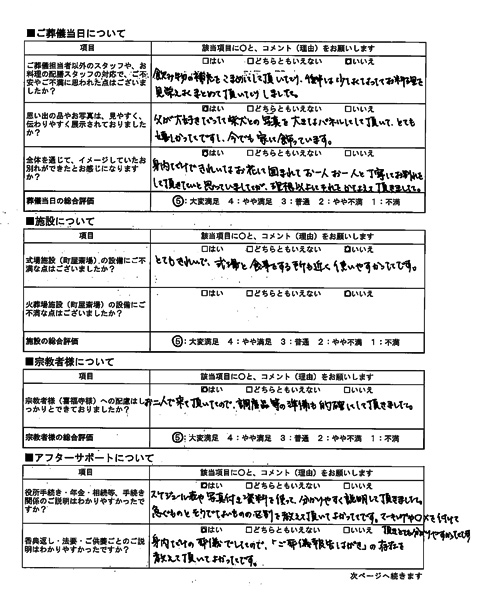 ■ご葬儀当日について
項目　該当項目に○と、コメント（理由）をお願いします
ご葬儀担当者以外のスタッフや、お料理の配膳スタッフの対応で、ご不安やご不満に思われた点はございましたか？
□はい　□どちらともいえない　☑いいえ
飲み物の補充をこまめにして頂いたり、後半は少なくなってお料理を
見栄えよくまとめて頂いたりしました。
思い出の品やお写真は、見やすく、伝わりやすく展示されておりましたか？
☑はい　□どちらともいえない　□いいえ
父が大好きだった柴犬との写真を大きなパネルにして頂いて、とても
嬉しかったですし、今でも家に飾っています。
全体を通じて、イメージしていたお別れができたとお感じになりますか？
☑はい　□どちらともいえない　□いいえ
身内だけできれいなお花に囲まれてお一人お一人と丁寧にお別れを
して頂きたいと思っていましたが、理想以上にそれをかなえて頂きました。
葬儀当日の総合評価　⑤：大変満足　4：やや満足　3：普通　2：やや不満　1：不満
■施設について
項目　該当項目に○と、コメント（理由）をお願いします
式場施設（町屋斎場）の設備にご不満な点はございましたか？
□はい　□どちらともいえない　☑いいえ
とてもきれいで、式場と食事をする所も近く使いやすかったです。
火葬場施設（町屋斎場）の設備にご不満な点はございましたか？
□はい　□どちらともいえない　☑いいえ
施設の総合評価　⑤：大変満足　4：やや満足　3：普通　2：やや不満　1：不満
■宗教者様について
項目　該当項目に○と、コメント（理由）をお願いします
宗教者様（喜福寺様）への配慮はしっかりとできておりましたか？
☑はい　□どちらともいえない　□いいえ
お二人で来て頂いたので、調度品等の準備も的確にして頂きました。
宗教者様の総合評価　⑤：大変満足　4：やや満足　3：普通　2：やや不満　1：不満
■アフターサポートについて
項目　該当項目に○と、コメント（理由）をお願いします
役所手続き・年金・相続等、手続き関係のご説明はわかりやすかったですか？
☑はい　□どちらともいえない　□いいえ
スケジュール表や写真付き資料を使って、分かりやすく説明して頂きました。
急ぐものとそうでないものの区別を教えて頂いてよかったです。マーキングや○×を付けて
頂きとても分かりやすかったです
香典返し・法要・ご供養ごとのご説明はわかりやすかったですか？
☑はい　□どちらともいえない　□いいえ
身内だけの葬儀でしたので、「ご葬儀報告はがき」の存在を
教えて頂いてよかったです。
次ページへ続きます